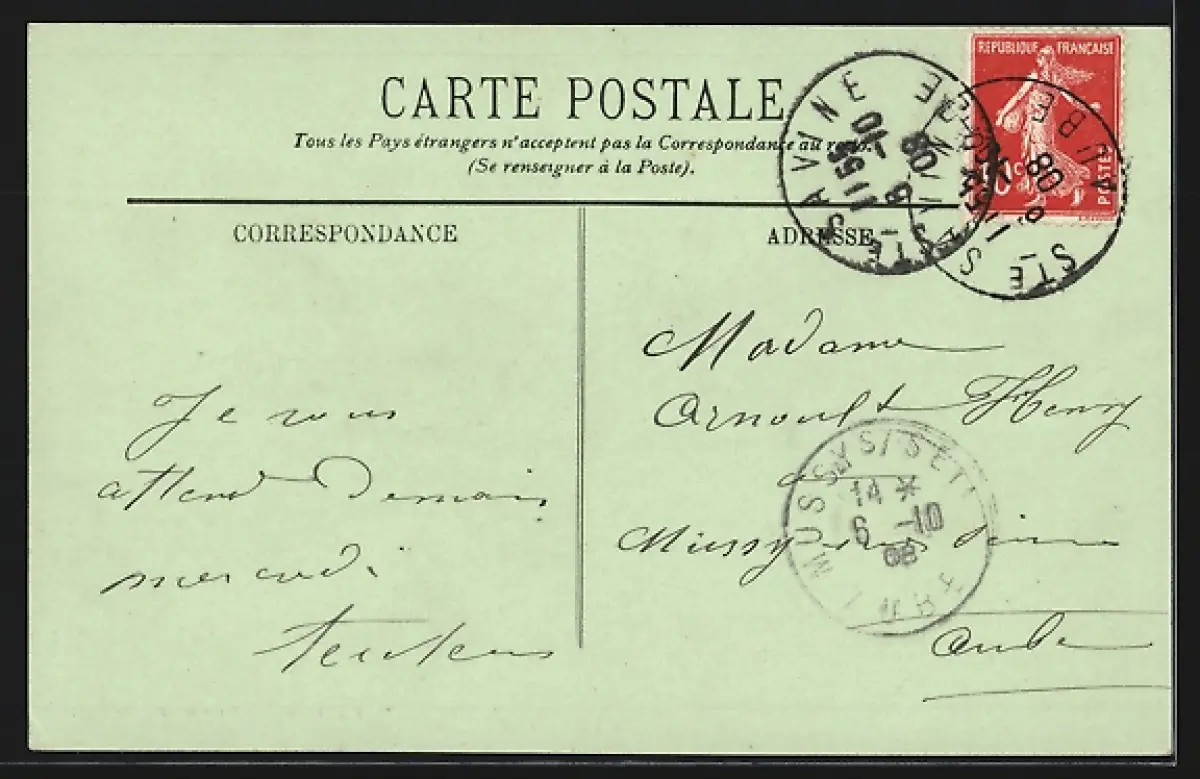 CARTE POSTALE
Tous les Pays étrangers n'acceptent pas la Correspondance au recto.
(Se renseigner à la Poste).
REPUBLIQUE FRANÇAISE
10c
POSTES
SAVINE
1155
6-10
08
STE SAVINE
AUBE
08
CORRESPONDANCE
ADRESSE
Je vous
attend Demain
mercredi
Madame
Arnoult Henry
à
Mussy sur Seine
Aube
MUSSY S/SEINE
14 *
6 -10
08